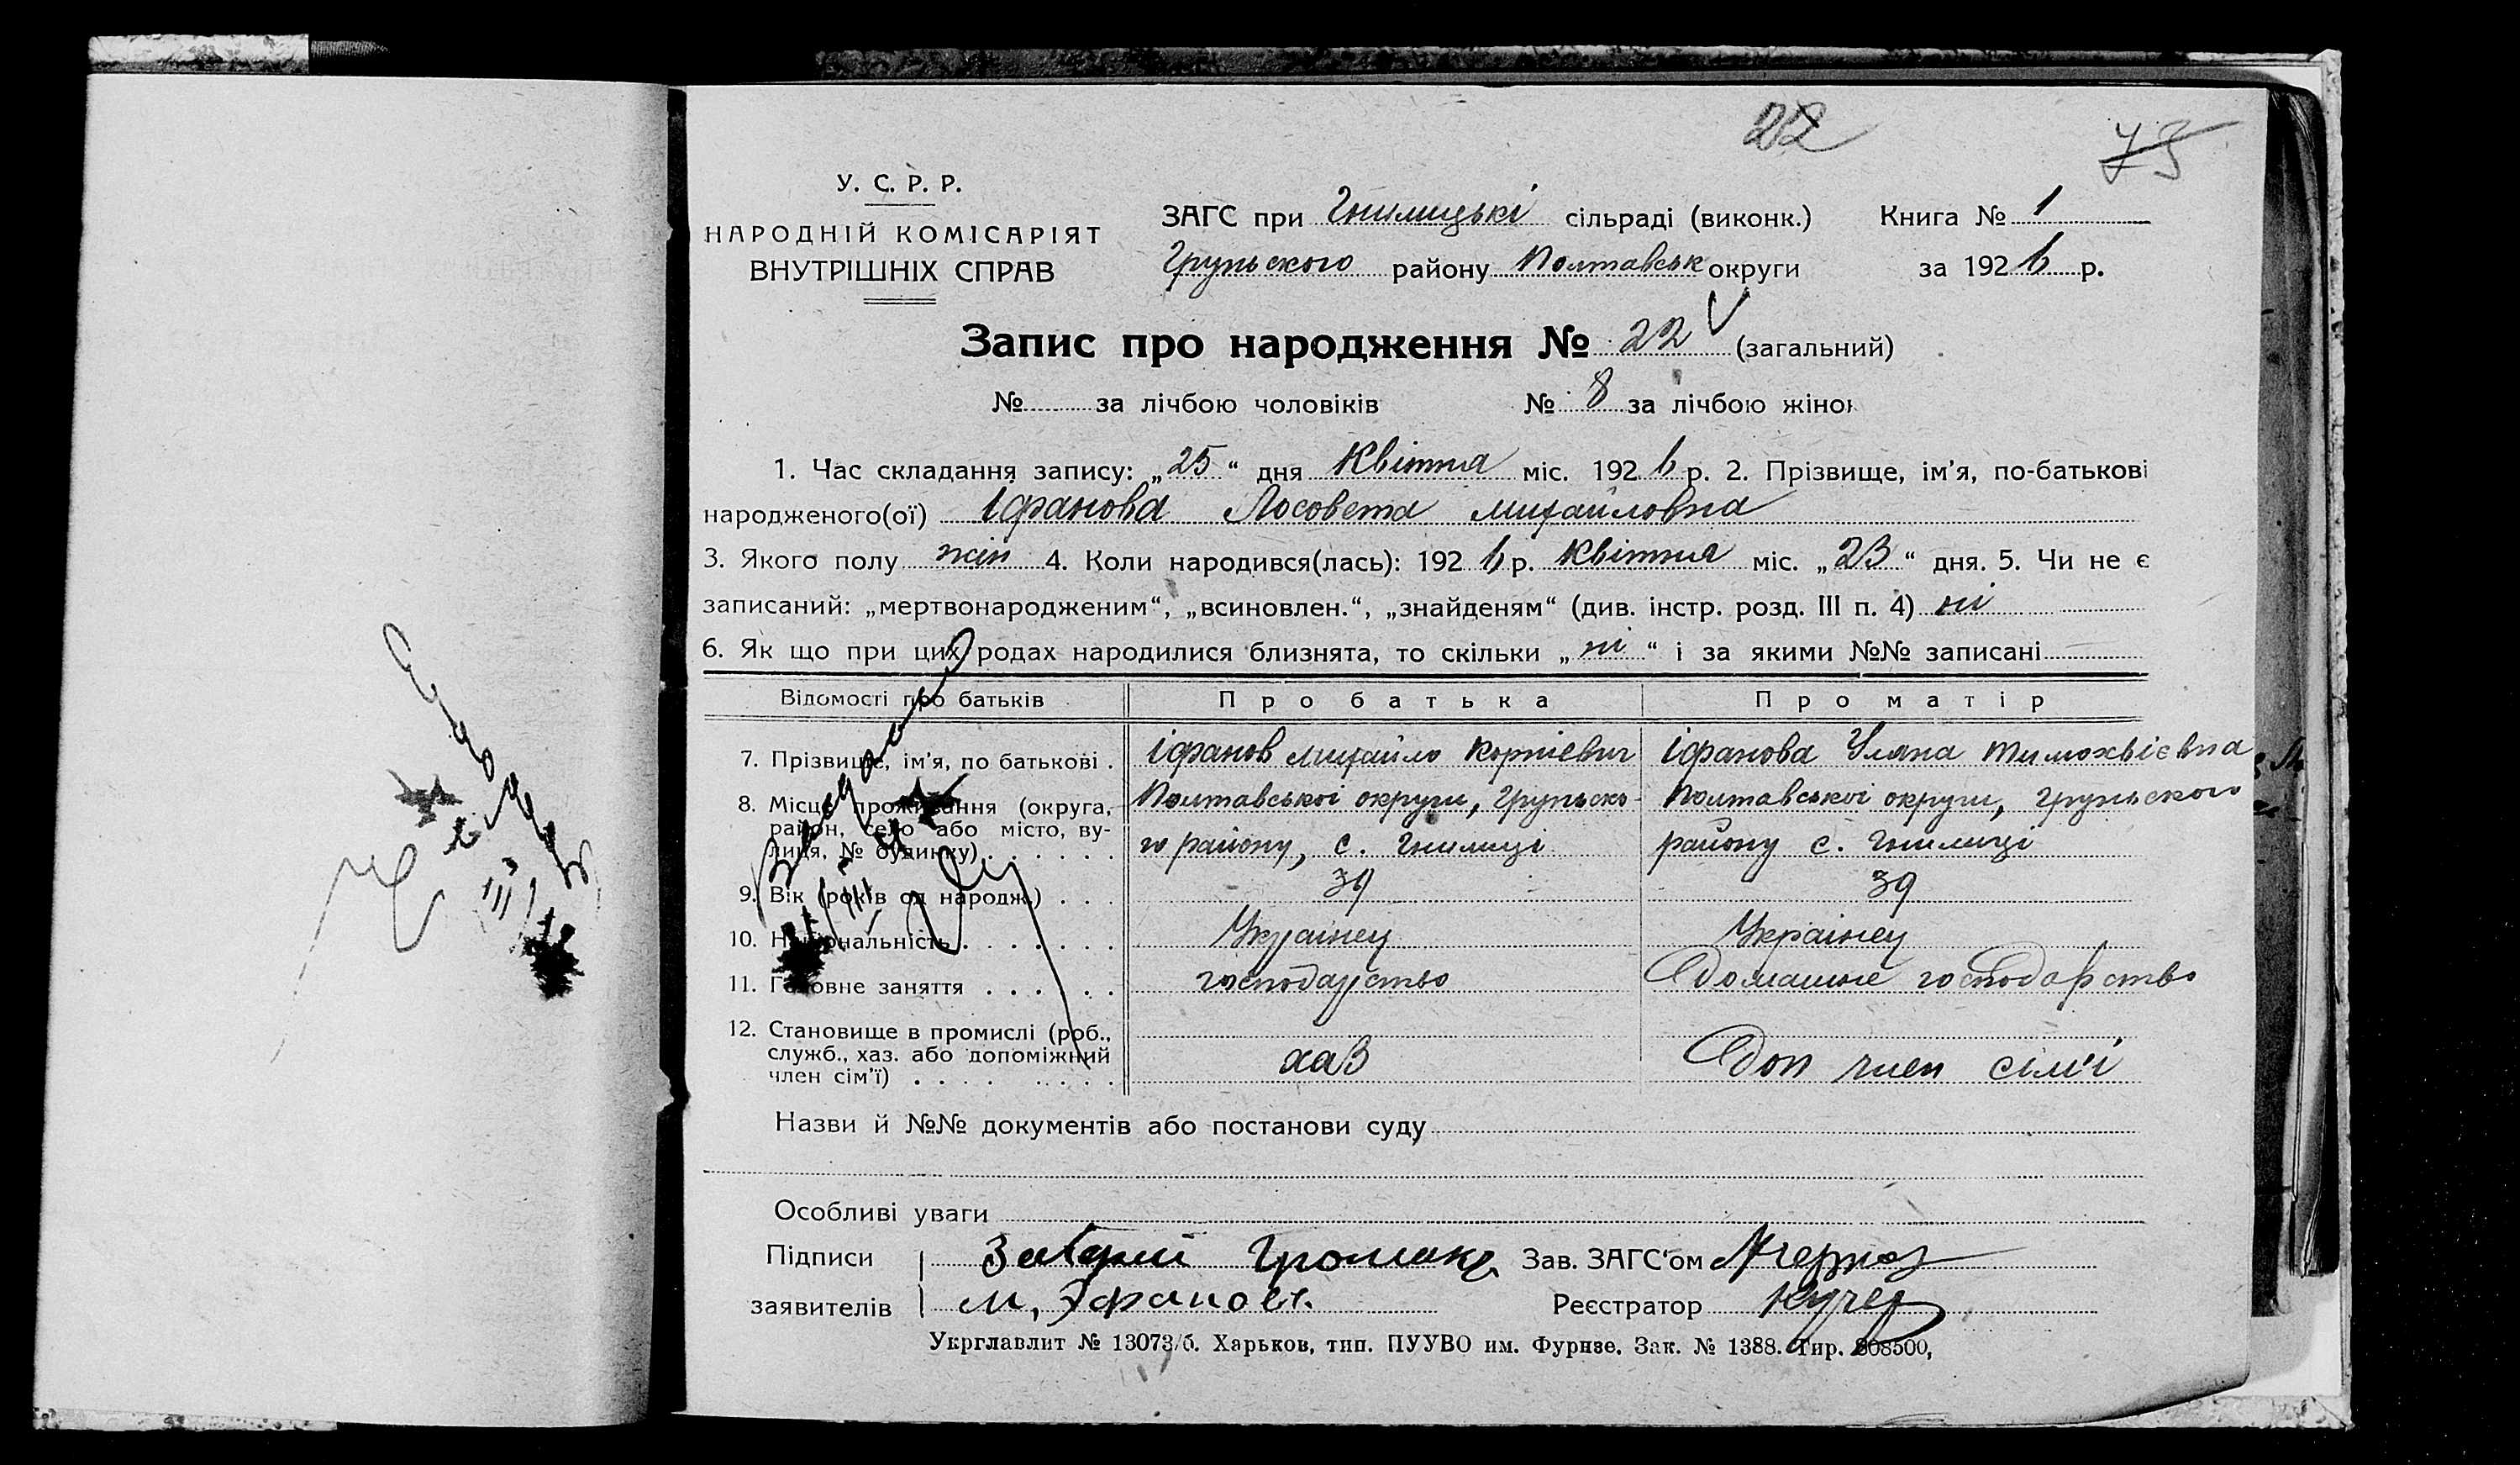 22
75
У. С. Р. Р.
НАРОДНІЙ КОМІСАРІЯТ
ВНУТРІШНІХ СПРАВ
ЗАГС при Гнилицькі сільраді (виконк.) Книга № 1
Грунського району Полтавськ округи за 1926 р.
Запис про народження № 22 (загальний)
№ за лічбою чоловіків № 8 за лічбою жінок
1. Час складання запису: „25“ дня Квітня міс. 1926 р. 2. Прізвище, ім’я, по-батькові
народженого(ої) Іфанова Лосовета михайловна
3. Якого полу жін 4. Коли народився(лась): 1926 р. Квітня міс. „23“ дня. 5. Чи не є
записаний: „мертвонародженим“, „всиновлен.“, „знайденям“ (див. інстр. розд. III п. 4) ні
6. Як що при цих родах народилися близнята, то скільки „ні“ і за якими №№ записані
Відомості про батьків Про батька Про матір
7. Прізвище, ім’я, по батькові . Іфанов михайло Корнієвич Іфанова Уляна тимохвієвна
8. Місце проживання (округа, район, село або місто, вулиця, № будинку) Полтавської округи, Грунсько-
го району, с. Гнилиці
Полтавської округи, Грунського
району с. Гнилиці
9. Вік (років од народж.) . . . 39 39
10. Національність . . . Українец Українец
11. Головне заняття . . . господарство домашнє господарство
12. Становище в промислі (роб.,
служб., хаз. або допоміжний
член сім’ї) . . . хаз Доп член сім'ї
Назви й №№ документів або постанови суду
Особливі уваги
Підписи Громака Зав. ЗАГС’ом
заявителів М, Эфанов. Реєстратор Кучер
Укрглавлит № 13073/б. Харьков, тип. ПУУВО им. Фурнзе. Зак. № 1388. Тир. 808500,